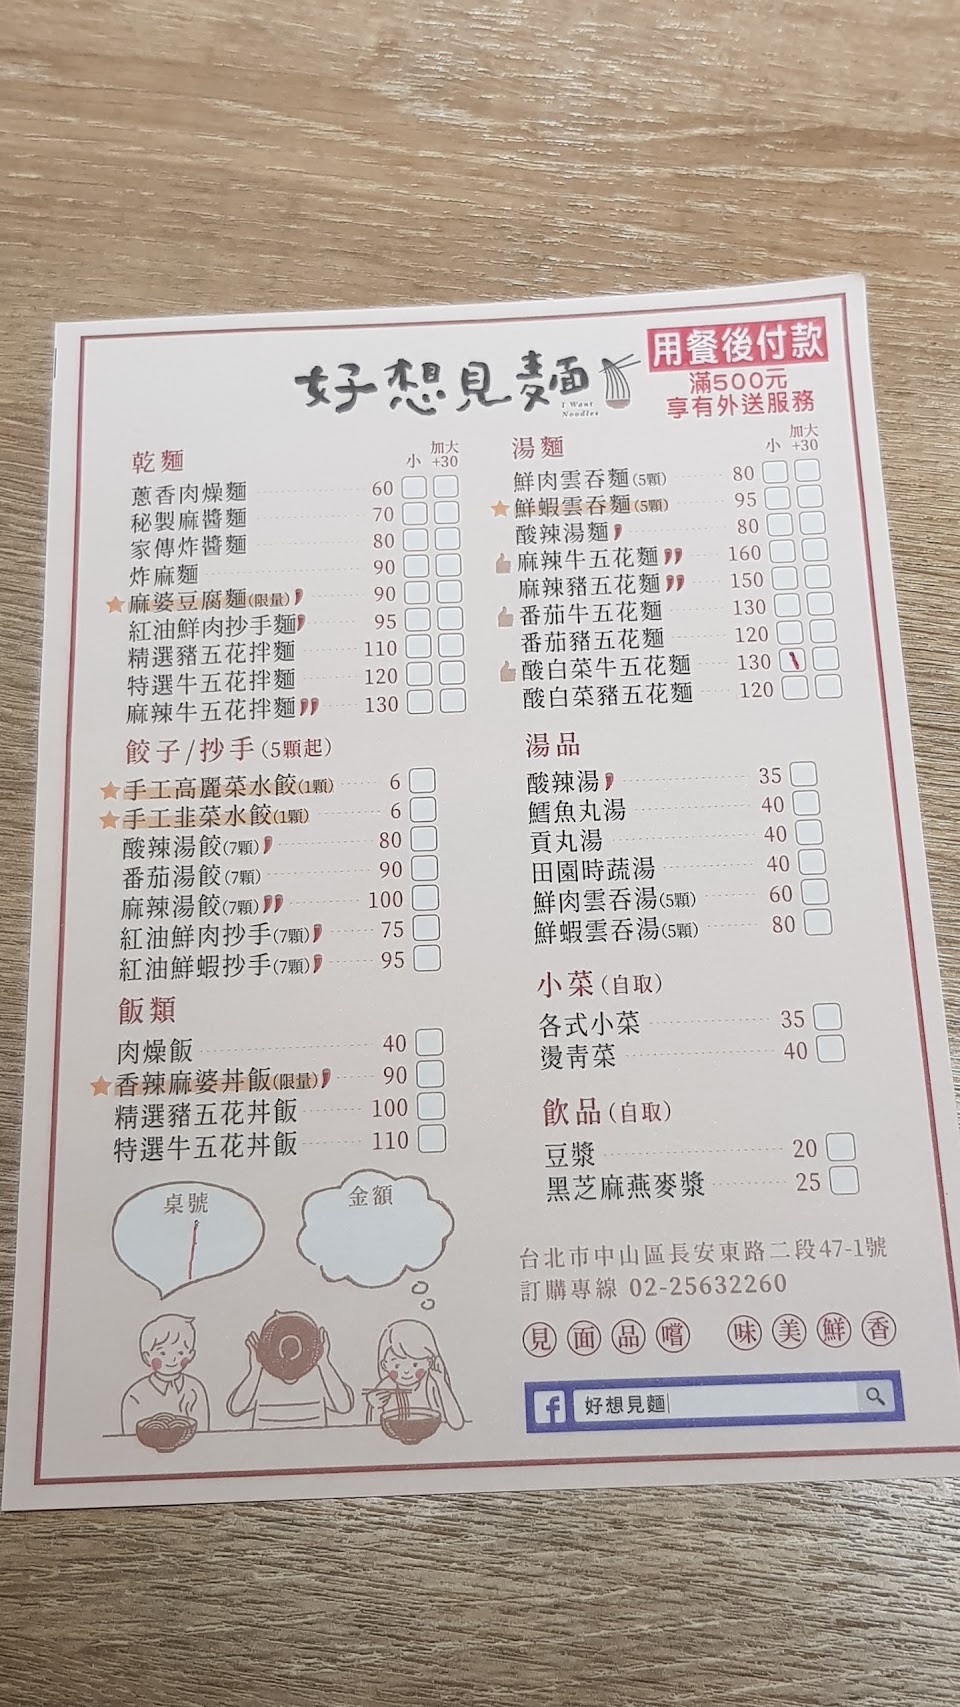 好想見麵
I Want
Noodles
用餐後付款
滿500元
享有外送服務
乾麵 小 加大+30
蔥香肉燥麵 60
秘製麻醬麵 70
家傳炸醬麵 80
炸麻麵 90
麻婆豆腐麵(限量) 90
紅油鮮肉抄手麵 95
精選豬五花拌麵 110
特選牛五花拌麵 120
麻辣牛五花拌麵 130
餃子/抄手(5顆起)
手工高麗菜水餃(1顆) 6
手工韭菜水餃(1顆) 6
酸辣湯餃(7顆) 80
番茄湯餃(7顆) 90
麻辣湯餃(7顆) 100
紅油鮮肉抄手(7顆) 75
紅油鮮蝦抄手(7顆) 95
飯類
肉燥飯 40
香辣麻婆丼飯(限量) 90
精選豬五花丼飯 100
特選牛五花丼飯 110
桌號
1
金額
湯麵 小 加大+30
鮮肉雲吞麵(5顆) 80
鮮蝦雲吞麵(5顆) 95
酸辣湯麵 80
麻辣牛五花麵 160
麻辣豬五花麵 150
番茄牛五花麵 130
番茄豬五花麵 120
酸白菜牛五花麵 130
酸白菜豬五花麵 120
湯品
酸辣湯 35
鱈魚丸湯 40
貢丸湯 40
田園時蔬湯 40
鮮肉雲吞湯(5顆) 60
鮮蝦雲吞湯(5顆) 80
小菜(自取)
各式小菜 35
燙青菜 40
飲品(自取)
豆漿 20
黑芝麻燕麥漿 25
台北市中山區長安東路二段47-1號
訂購專線 02-25632260
見面品嚐 味美鮮香
f 好想見麵